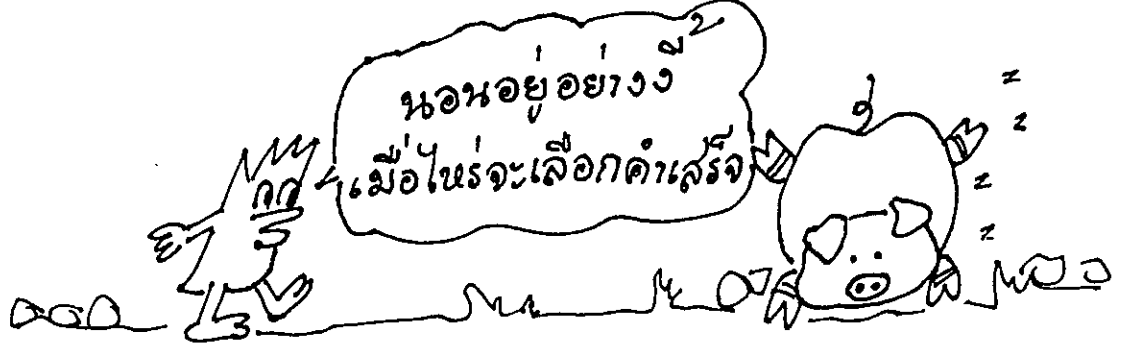 นอนอยู่อย่างงี้
เมื่อไหร่จะเลือกคำเสร็จ
z
z
z
z